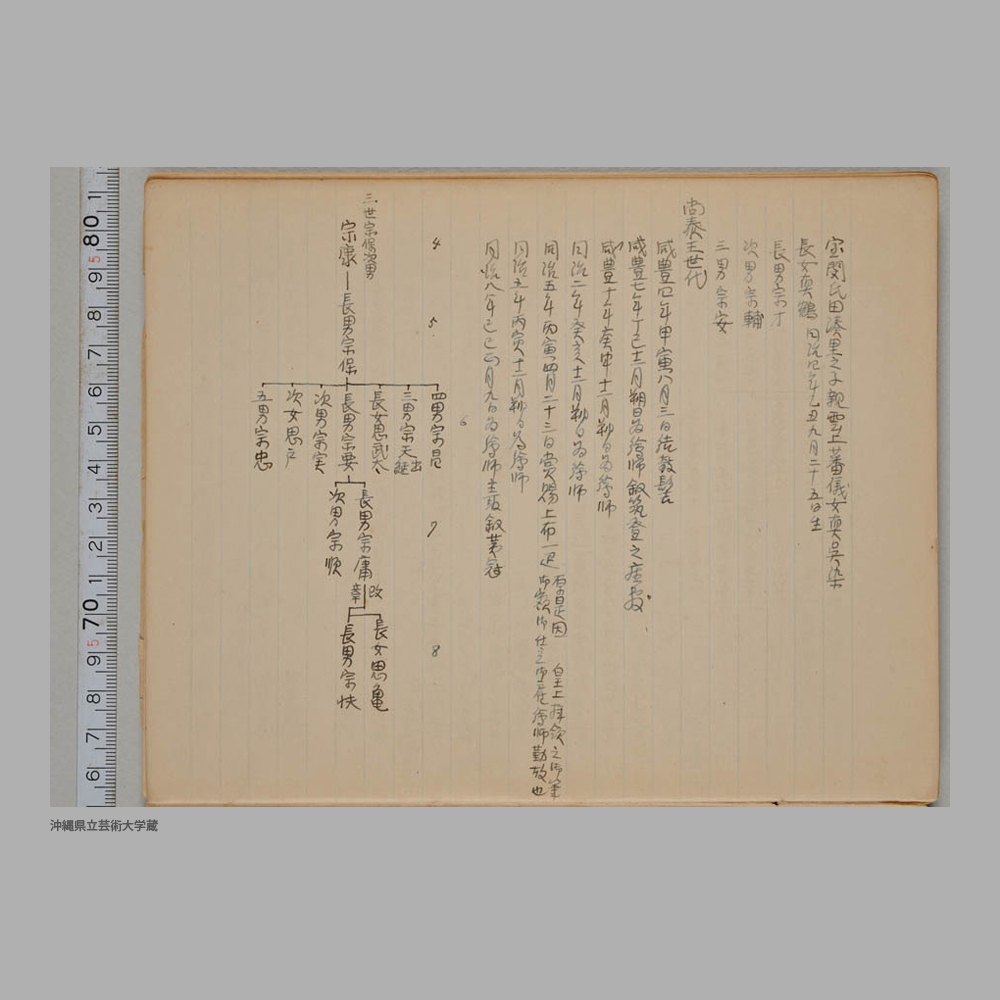 室閔氏田湊里之子親雲上蕃儀女真呉染
長女真鶴 同治四年乙丑九月二十五日生
長男宗才
次男宗輔
三男宗安
尚泰王世代
咸豊四年甲寅八月三日結敷髻
咸豊七年丁巳十二月朔日為絵師叙筑登之座敷
咸豊十年庚申十二月朔日為絵師
同治二年癸亥十二月朔日為絵師
同治五年丙寅四月二十三日賞賜上布一疋
右是因 皇上拝領之御筆
御絵師勤故也
同治五年丙寅十二月朔日為絵師
同治八年己巳 月九日為絵師主取叙黄冠
4
5
6
7
8
三世宗保次男
宗康
長男宗保
四男宗昆
三男宗天
出
長女思武太
長男宗要
次男宗実
次女思戸
五男宗忠
長男宗庸
改
章
次男宗順
長女思亀
長男宗快
80
70
1
5
9
8
7
6
5
4
3
2
1
5
9
8
7
6
沖縄県立芸術大学蔵